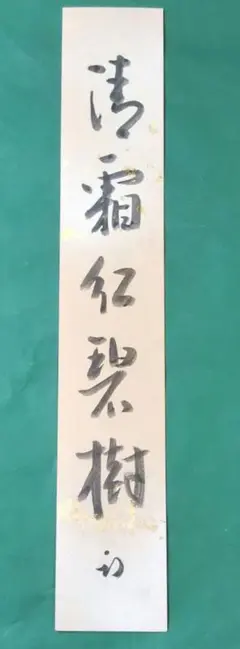 清霜紅碧樹